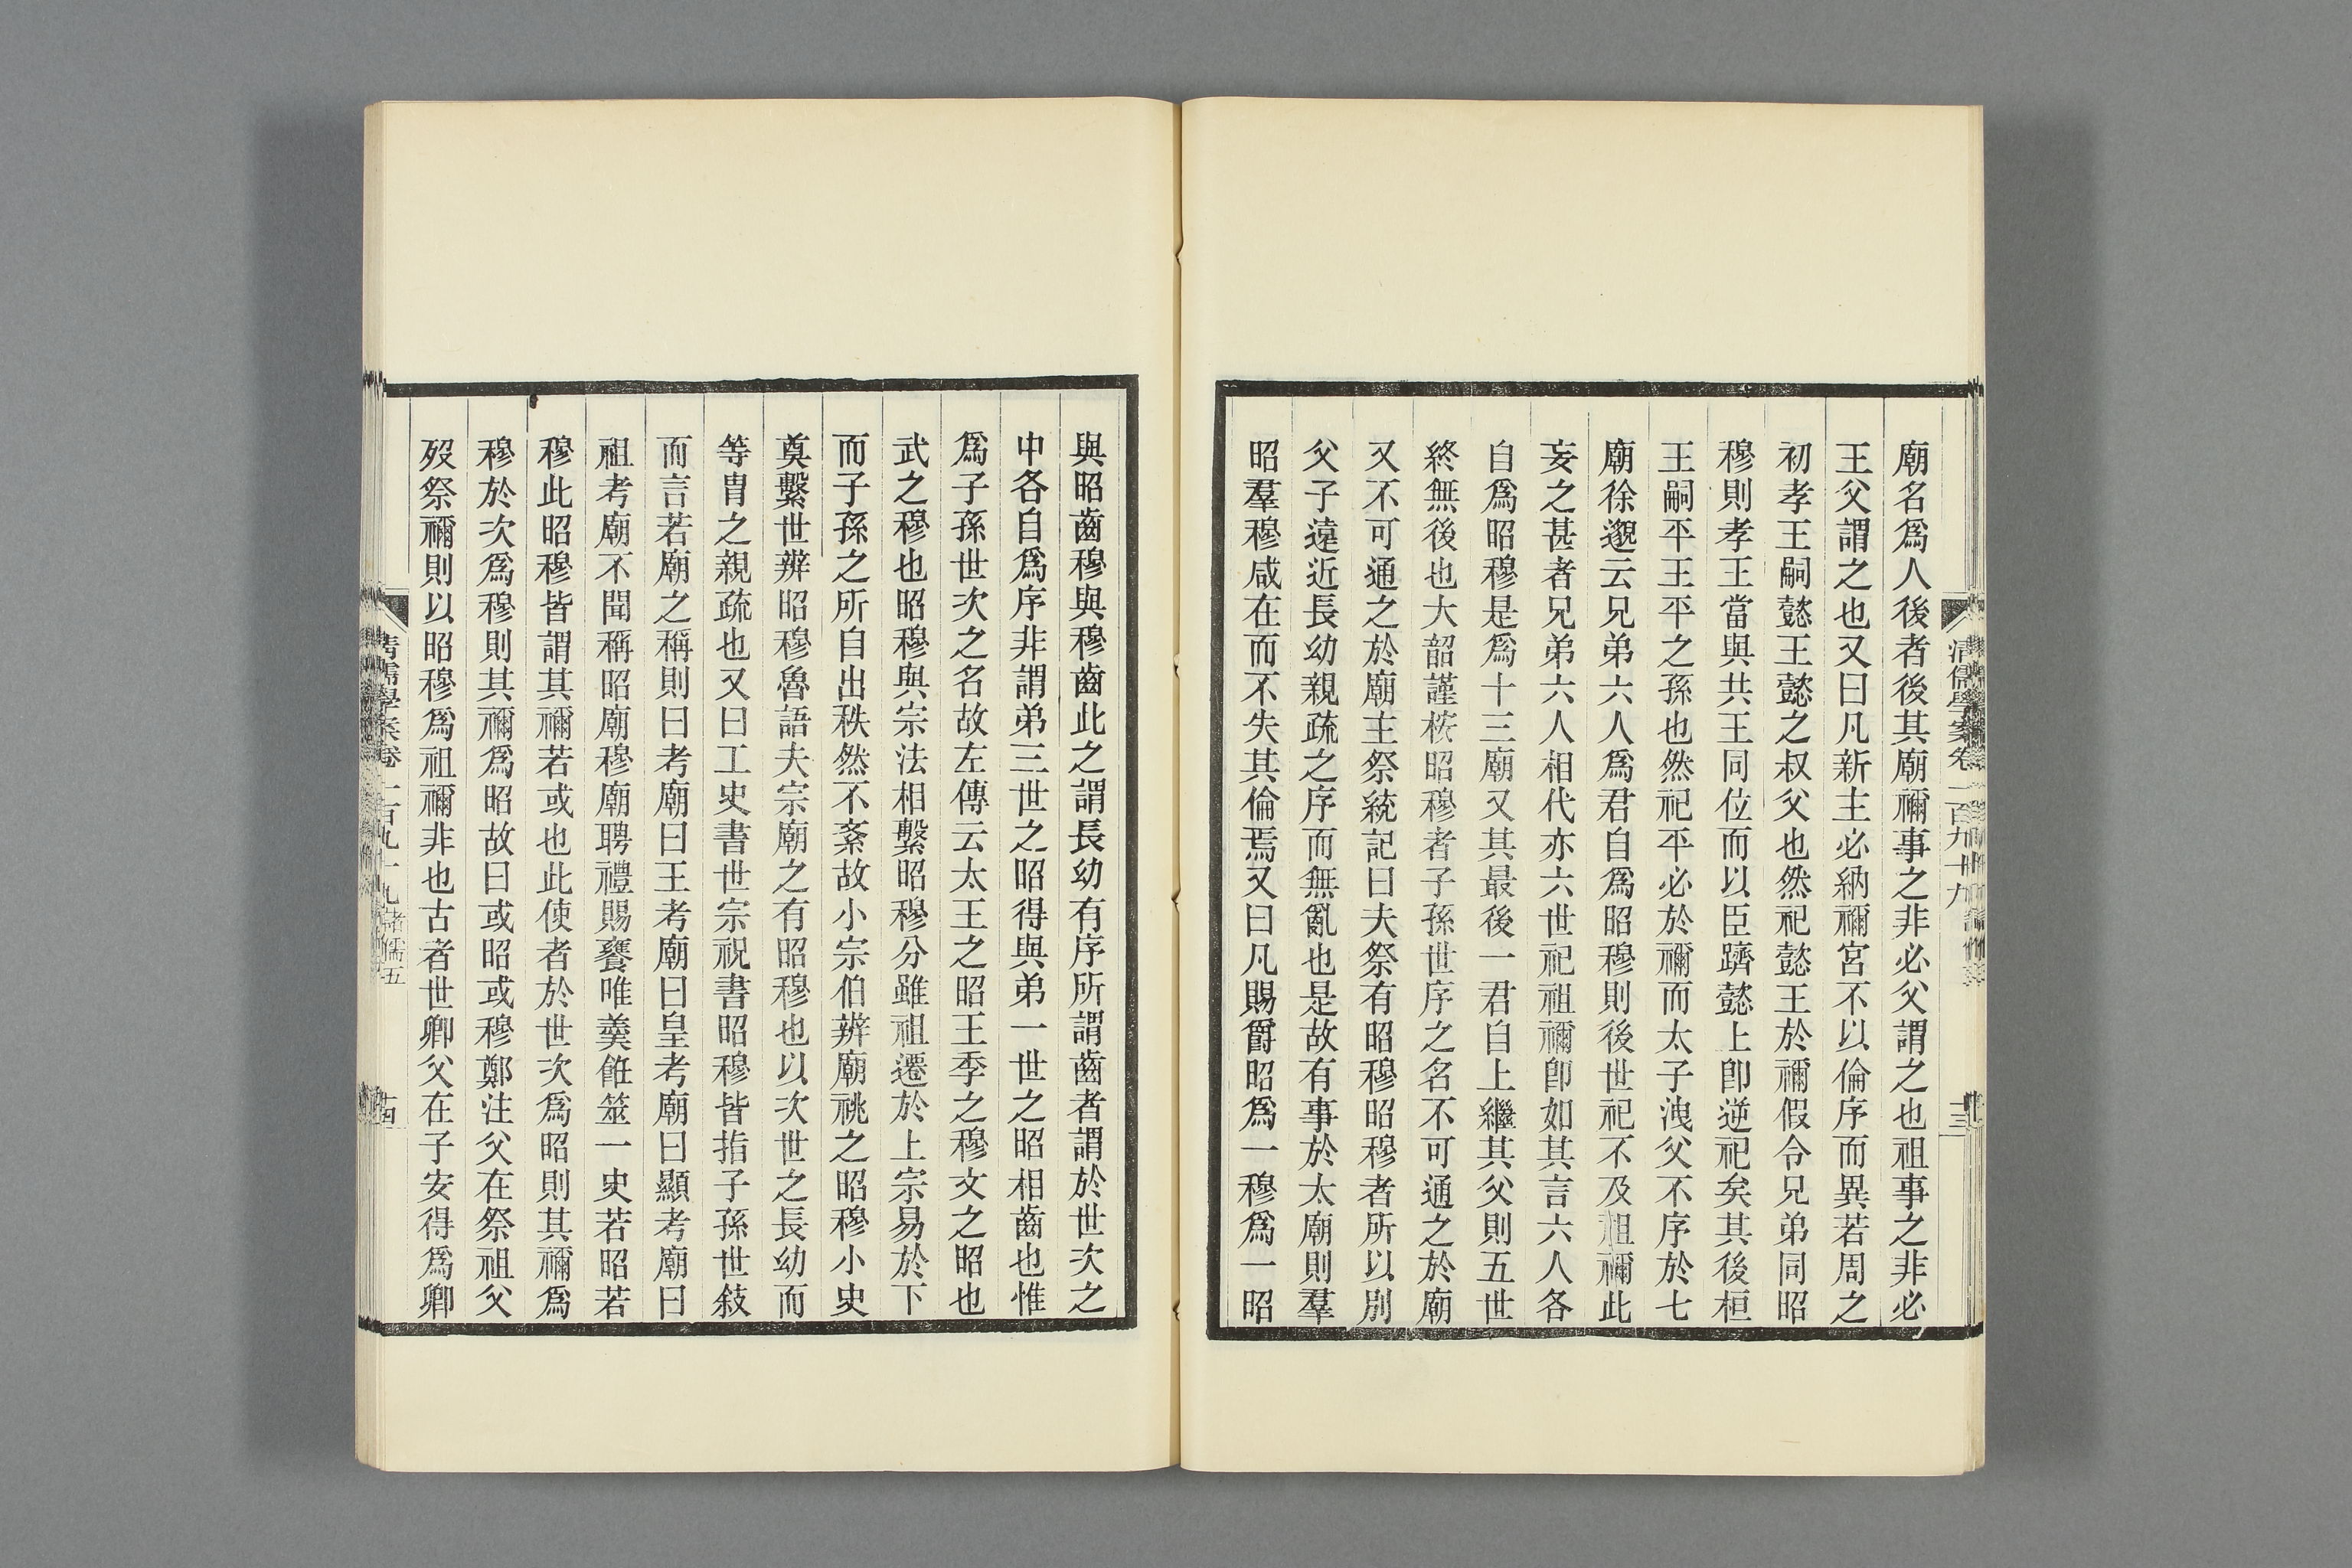 清儒學案卷一百九十九
廟名爲人後者後其廟禰事之非必父謂之也祖事之非必
王父謂之也又曰凡新主必納禰宮不以倫序而異若周之
初孝王嗣懿王懿之叔父也然祀懿王於禰假令兄弟同昭
穆則孝王當與共王同位而以臣躋懿上卽逆祀矣其後桓
王嗣平王王平之孫也然祀平必於禰而太子洩父不序於七
廟徐邈云兄弟六人爲君自爲昭穆則後世祀不及祖禰此
妄之甚者兄弟六人相代亦六世祀祖禰卽如其言六人各
自爲昭穆是爲十三廟又其最後一君自上繼其父則五世
終無後也大韶謹桉昭穆者子孫世序之名不可通之於廟
又不可通之於廟主祭統記曰夫祭有昭穆昭穆者所以別
父子遠近長幼親疏之序而無亂也是故有事於太廟則羣
昭羣穆咸在而不失其倫焉又曰凡賜爵昭爲一穆爲一昭
十三
與昭齒穆與穆齒此之謂長幼有序所謂齒者謂於世次之
中各自爲序非謂弟三世之昭得與弟一世之昭相齒也惟
爲子孫世次之名故左傳云太王之昭王季之穆文之昭也
武之穆也昭穆與宗法相繫昭穆分雖祖遷於上宗易於下
而子孫之所自出秩然不紊故小宗伯辨廟祧之昭穆小史
奠繫世辨昭穆魯語夫宗廟之有昭穆也以次世之長幼而
等胄之親疏也又曰工史書世宗祝書昭穆皆指子孫世敍
而言若廟之稱則曰考廟曰王考廟曰皇考廟曰顯考廟曰
祖考廟不聞稱昭廟穆廟聘禮賜饔唯羹飪筮一史若昭若
穆此昭穆皆謂其禰若或也此使者於世次爲昭則其禰爲
穆於次爲穆則其禰爲昭故曰或昭或穆鄭注父在祭祖父
歿祭禰則以昭穆爲祖禰非也古者世卿父在子安得爲卿
清儒學案卷一百九十九 諸儒五
十四